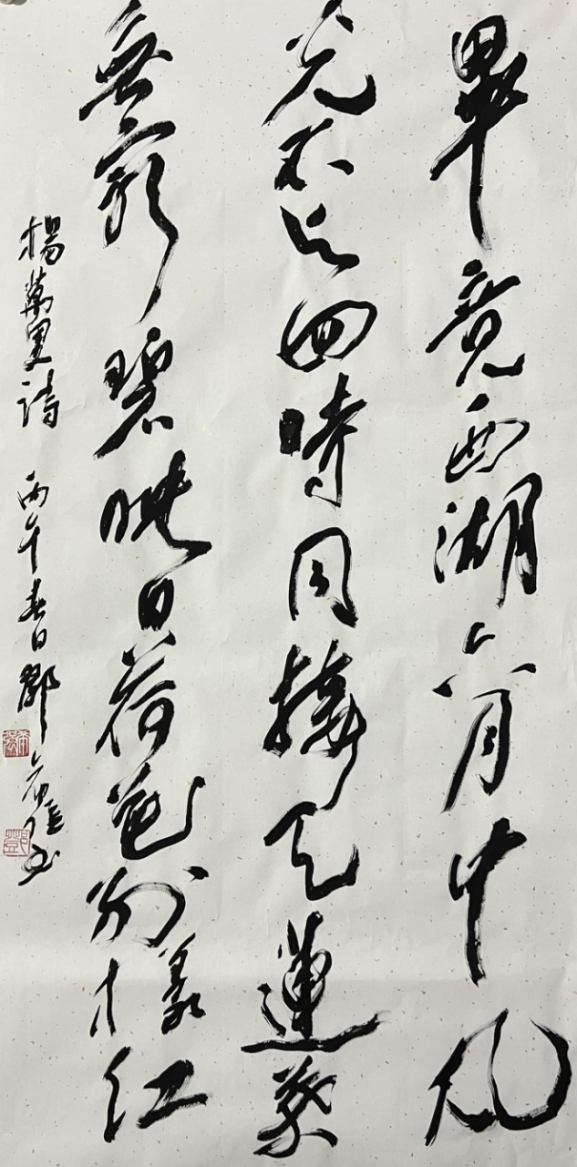 畢竟西湖六月中風
光不与四時同接天蓮葉
無窮碧映日荷花別樣紅
楊萬里詩 丙午春日鄧